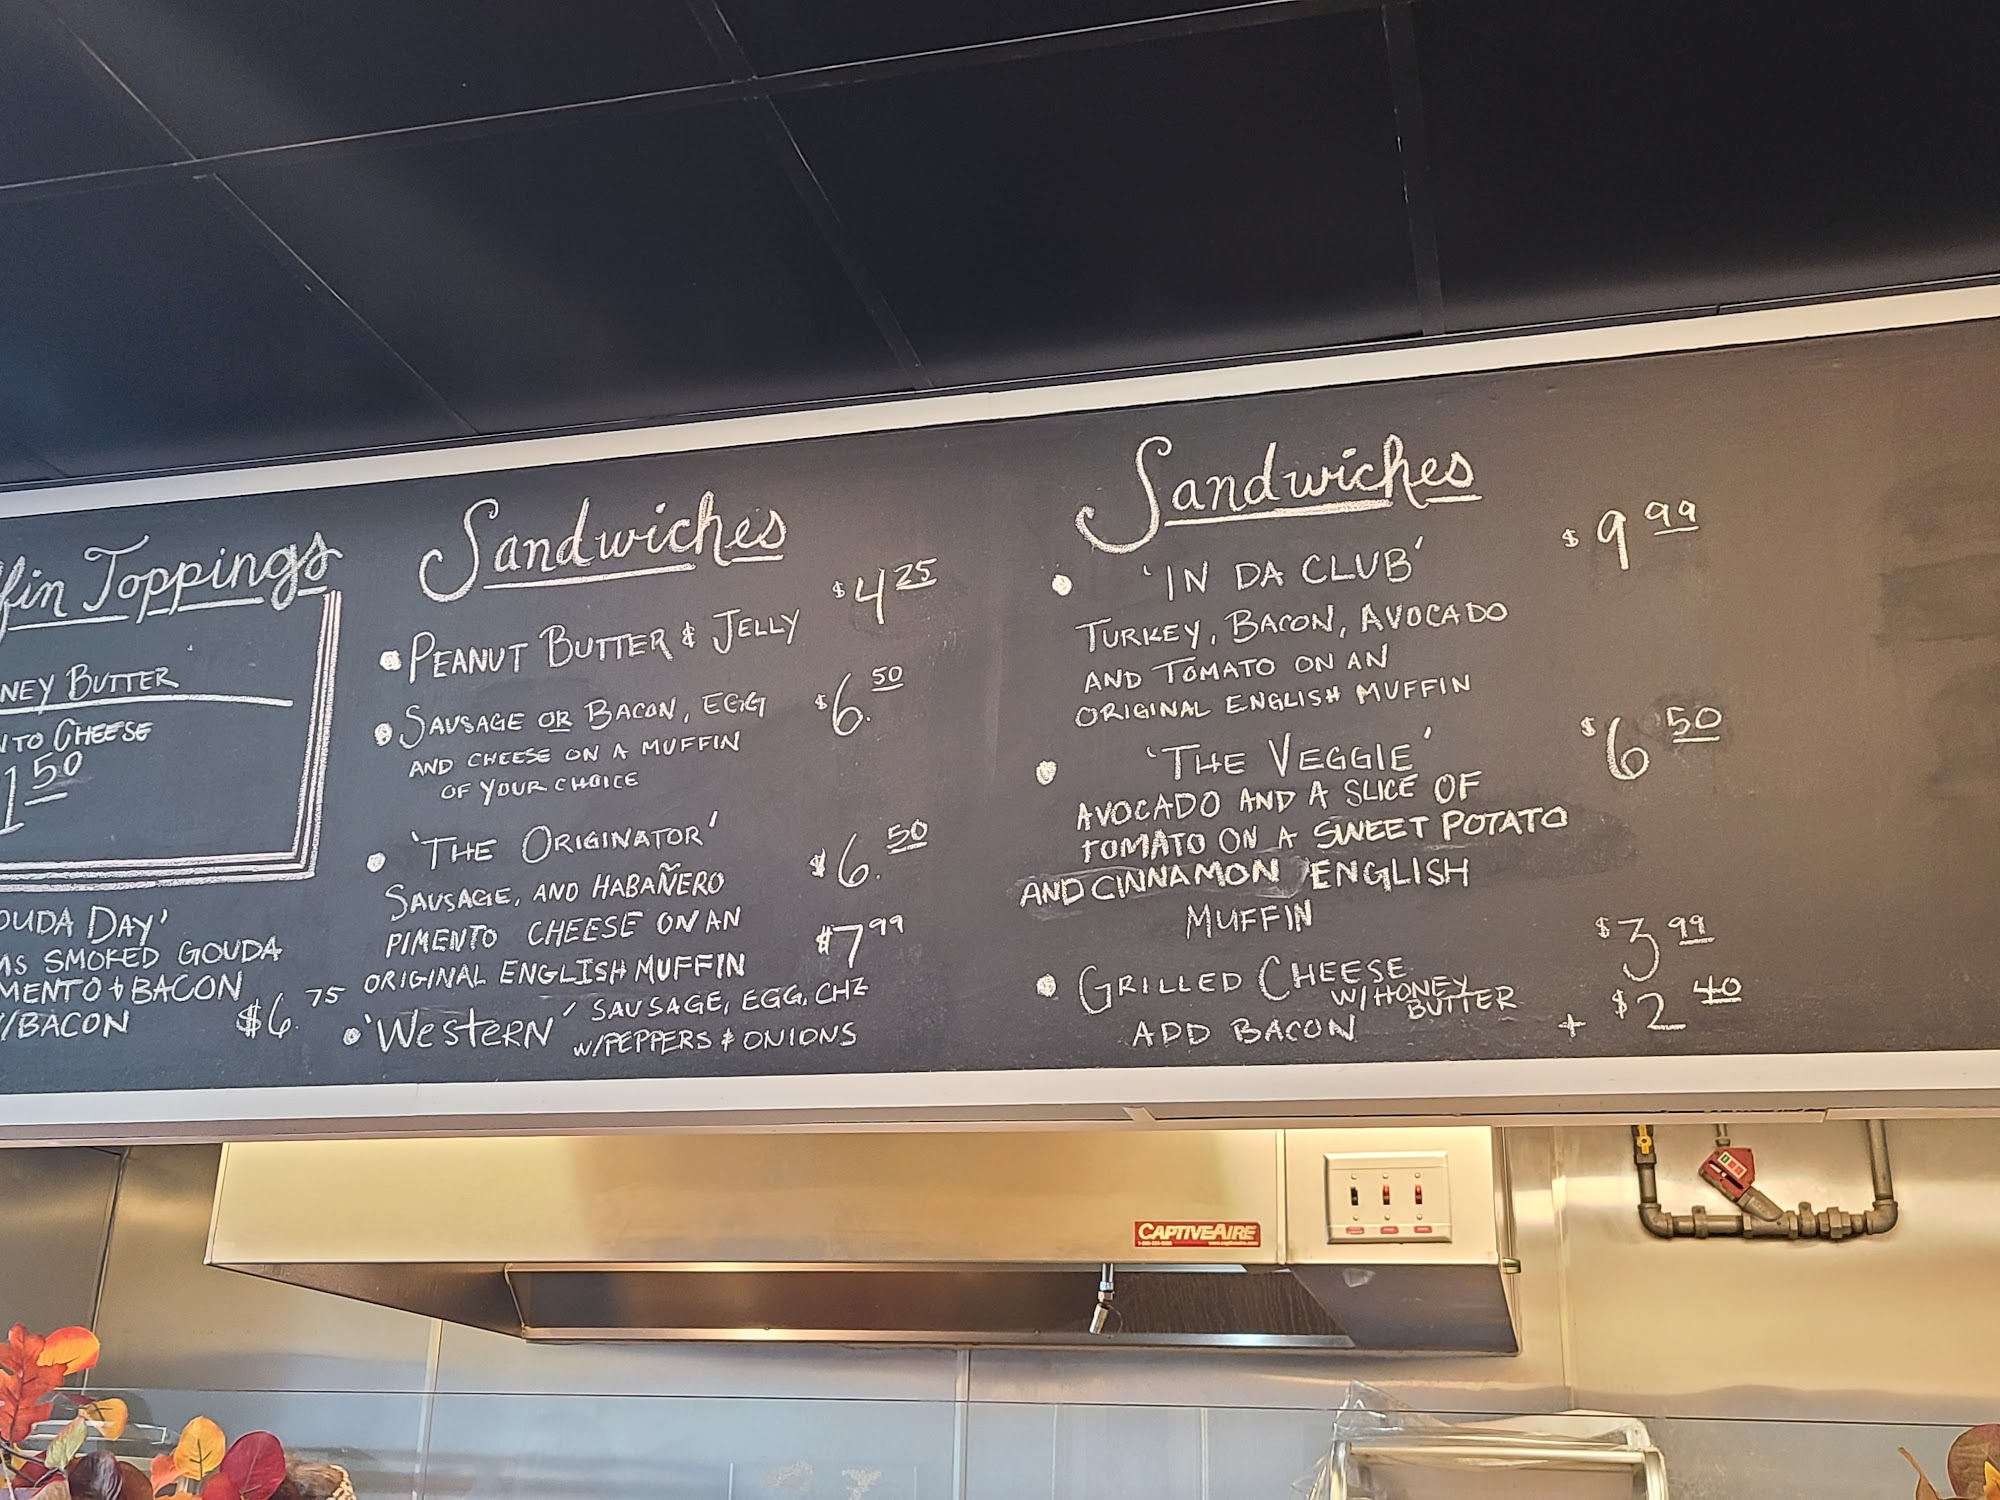 Toppings
BUTTER
CHEESE
50
DAY'
SMOKED GOUDA
BACON
/BACON
$6.75
Sandwiches
PEANUT BUTTER & JELLY $4 25
SAUSAGE OR BACON, EGG $6.50
AND CHEESE ON A MUFFIN
OF YOUR CHOICE
'THE ORIGINATOR' $6.50
SAUSAGE, AND HABAÑERO
PIMENTO CHEESE ON AN
ORIGINAL ENGLISH MUFFIN
$7 99
'WESTERN' SAUSAGE, EGG, CHZ
W/PEPPERS & ONIONS
Sandwiches
'IN DA CLUB' $9 99
TURKEY, BACON, AVOCADO
AND TOMATO ON AN
ORIGINAL ENGLISH MUFFIN
'THE VEGGIE' $6 50
AVOCADO AND A SLICE OF
TOMATO ON A SWEET POTATO
AND CINNAMON ENGLISH
MUFFIN
GRILLED CHEESE $3 99
W/HONEY
BUTTER
ADD BACON + $2 40
CAPTIVEAIRE